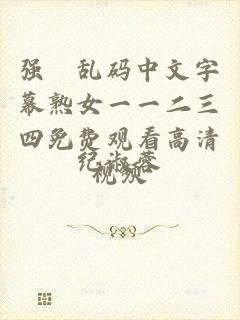 强 乱码中文字
幕熟女一一二三
四免费观看高清
视频
纪淑蓉